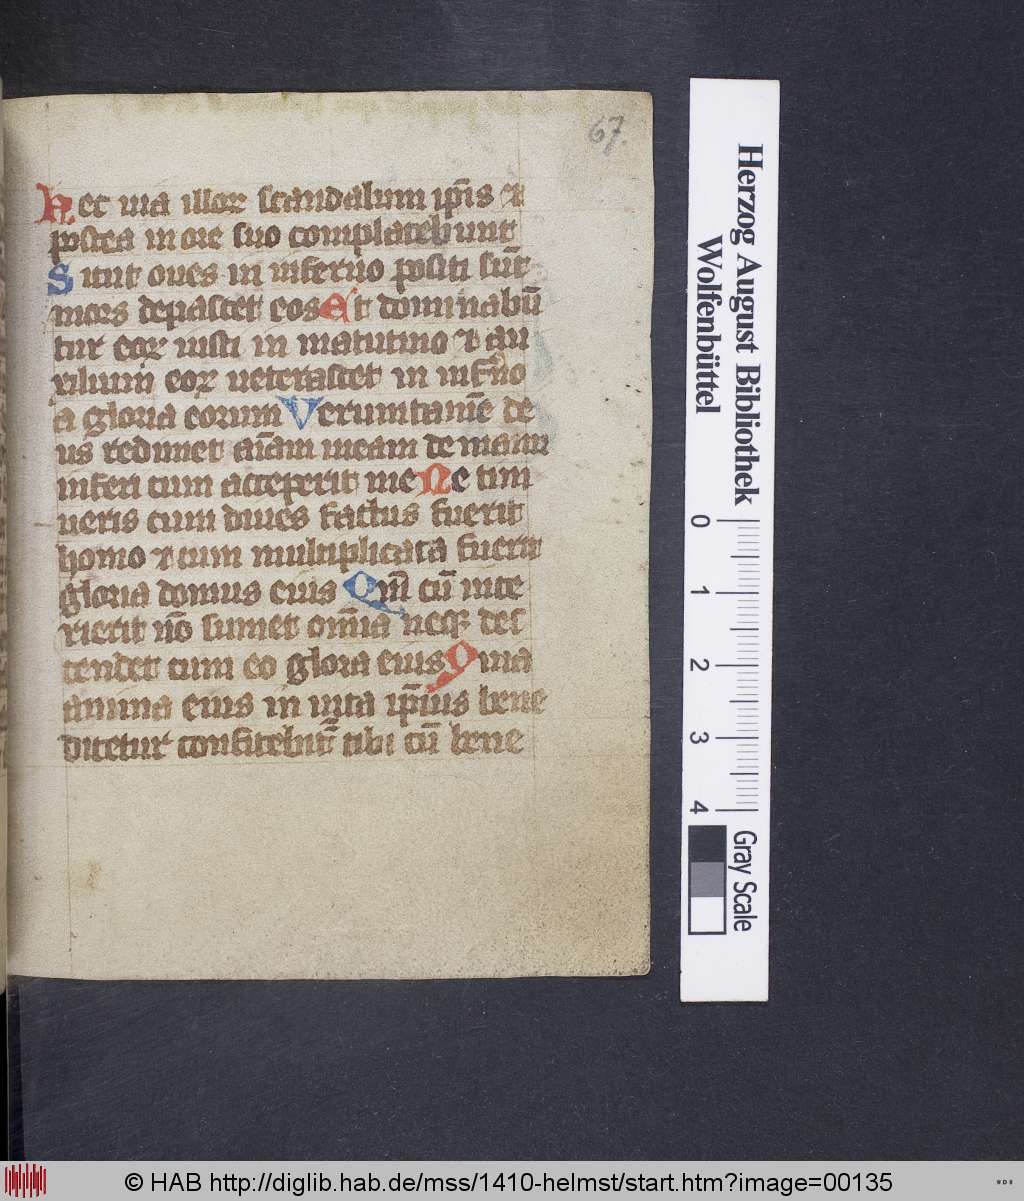 67.
Hec uia illoꝝ scandalum ip̄is ⁊
postea in ore suo complacebunt
Sicut oues in inferno positi sūt
mors depascet eos Et dominabū
tur eoꝝ iusti in matutino ⁊ au
xilium eoꝝ ueterascet in inferno
a gloria eorum Verumtamē de
us redimet aīam meam de manu
inferi cum acceperit me Ne tim
ueris cum diues factus fuerit
homo ⁊ cum multiplicata fuerit
gloria domus eius Qm̄ cū inte
rierit nō sumet om̄ia neqꝫ des
cendet cum eo glora eius Quia
anima eius in uita ip̄ius bene
dicetur confitebit᷑ tibi cū bene
Herzog August Bibliothek
Wolfenbüttel
0 1 2 3 4
Gray Scale
© HAB http://diglib.hab.de/mss/1410-helmst/start.htm?image=00135